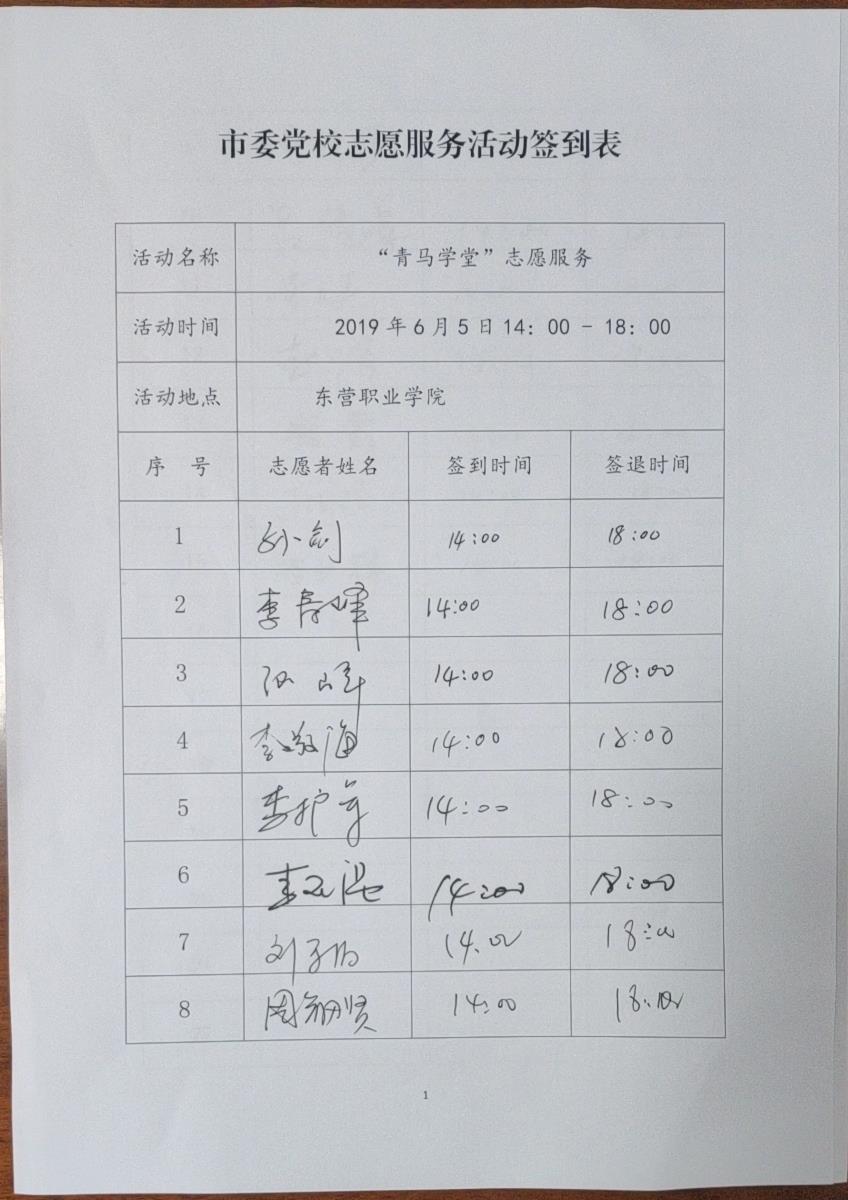 市委党校志愿服务活动签到表
活动名称 “青马学堂”志愿服务
活动时间 2019年6月5日14：00－18：00
活动地点 东营职业学院
序 号 志愿者姓名 签到时间 签退时间
1 孙剑 14:00 18:00
2 李春峰 14:00 18:00
3 山峰 14:00 18:00
4 李敬海 14:00 18:00
5 李护军 14:00 18:00
6 李 14:00 18:00
7 刘子 14:00 18:00
8 周 贤 14:00 18:00
1